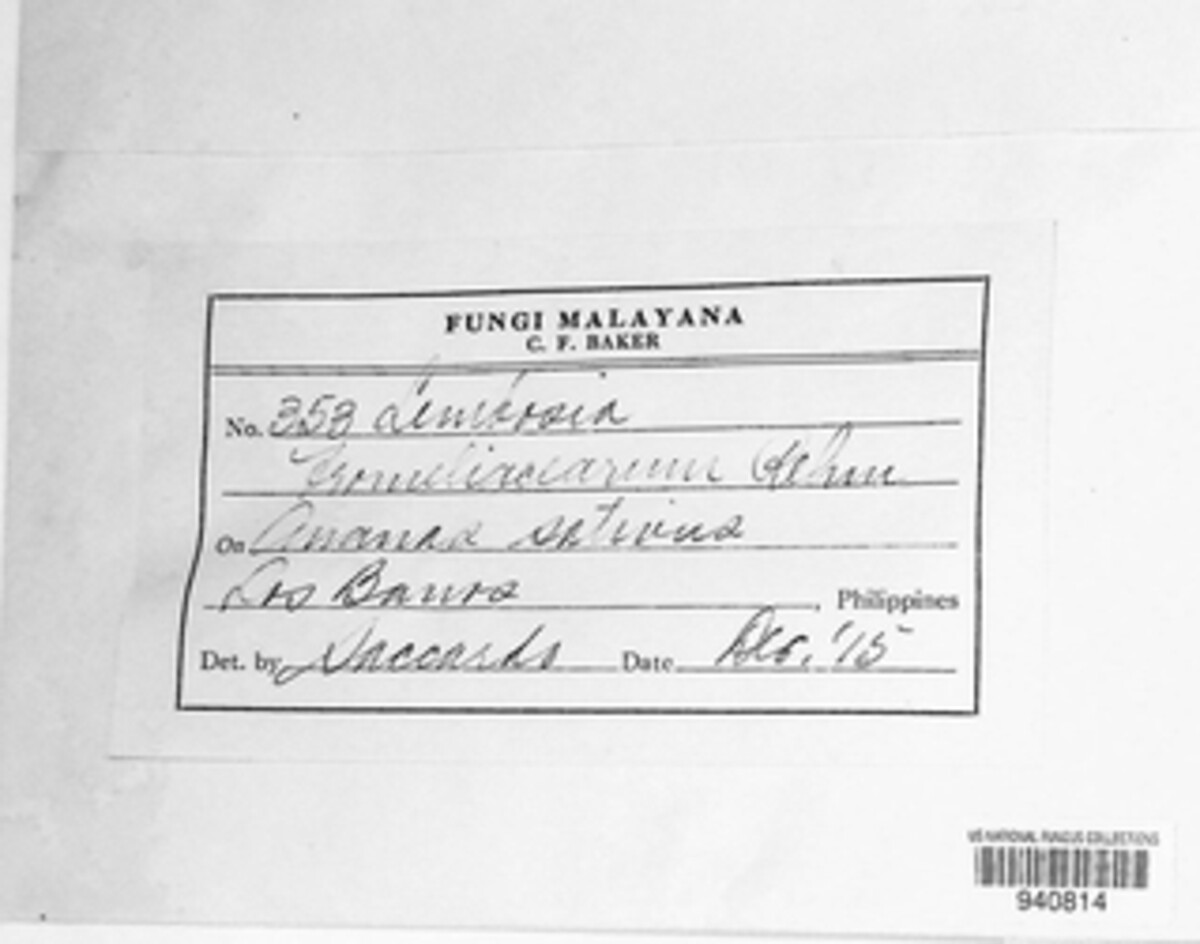 FUNGI MALAYANA
C. F. BAKER
No. 353 Lembosia
Bromeliacearum Rehm
On Ananas sativus
Los Banos, Philippines
Det. by Saccardo Date Dec. '15
US NATIONAL FUNGUS COLLECTIONS
940814